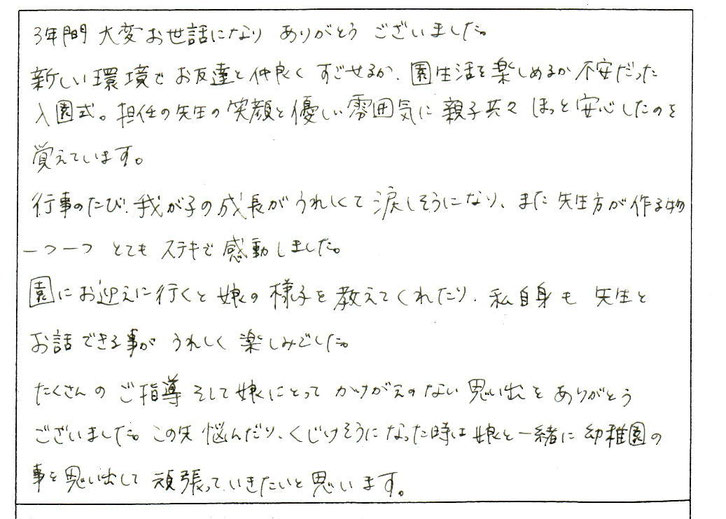 3年間 大変お世話になり ありがとう ございました。
新しい環境で お友達と仲良く すごせるか、園生活を楽しめるか 不安だった
入園式。担任の先生の笑顔と優しい雰囲気に 親子共々 ほっと安心したのを
覚えています。
行事のたび、我が子の成長が うれしくて 涙しそうになり、また 先生方が 作る物
一つ一つ とても ステキで 感動しました。
園にお迎えに行くと 娘の様子を 教えてくれたり、私自身も 先生と
お話できる事が うれしく 楽しみでした。
たくさんの ご指導 そして娘にとって かけがえのない 思い出を ありがとう
ございました。この先 悩んだり、くじけそうになった時は 娘と一緒に 幼稚園の
事を思い出して 頑張っていきたいと思います。